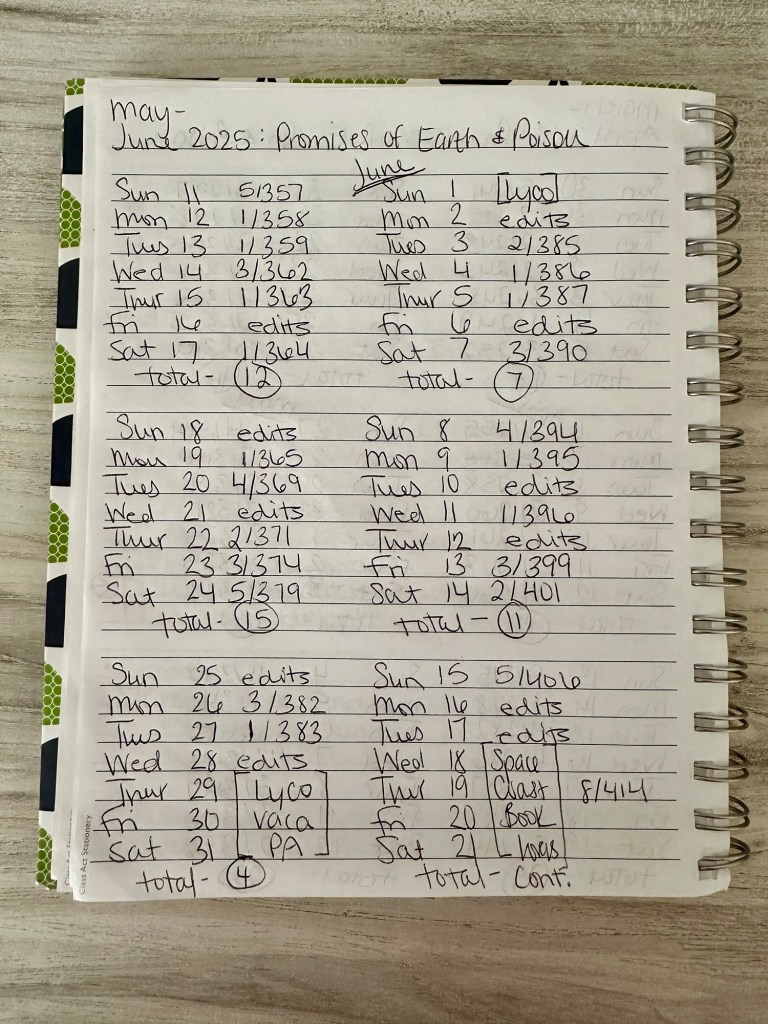 May-
June 2025: Promises of Earth & Poison
Sun 11 5/357
Mon 12 1/358
Tues 13 1/359
Wed 14 3/362
Thur 15 1/363
Fri 16 edits
Sat 17 1/364
total- 12
Sun 18 edits
Mon 19 1/365
Tues 20 4/369
Wed 21 edits
Thur 22 2/371
Fri 23 3/374
Sat 24 5/379
total- 15
Sun 25 edits
Mon 26 3/382
Tues 27 1/383
Wed 28 edits
Thur 29 Lyco
Fri 30 vaca
Sat 31 PA
total- 4
June
Sun 1 Lyco
Mon 2 edits
Tues 3 2/385
Wed 4 1/386
Thur 5 1/387
Fri 6 edits
Sat 7 3/390
total- 7
Sun 8 4/394
Mon 9 1/395
Tues 10 edits
Wed 11 1/396
Thur 12 edits
Fri 13 3/399
Sat 14 2/401
total- 11
Sun 15 5/406
Mon 16 edits
Tues 17 edits
Wed 18 Space
Thur 19 Coast 8/414
Fri 20 Book
Sat 21
total- Cont.
Class Act Stationery